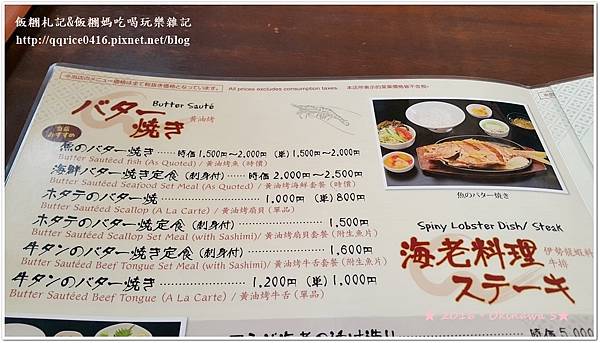 飯糰札記&飯糰媽吃喝玩樂雜記
http://qqrice0416.pixnet.net/blog
※当店のメニュー価格は全て税抜き価格となっています。 All prices excludes consumption taxes. 本店所表示的菜單價格皆不含稅。
Butter Sauté
バター焼き 黃油烤
当店おすすめ
魚のバター焼き……時価1,500円〜2,000円 (単)1,500円〜2,000円
Butter Sautéed fish (As Quoted) / 黃油烤魚 (時價)
海鮮バター焼き定食 (刺身付)……時価 2,000円〜2,500円
Butter Sautéed Seafood Set Meal (As Quoted) / 黃油烤海鮮套餐 (時價)
ホタテのバター焼……1,000円 (単) 800円
Butter Sautéed Scallop (A La Carte) / 黃油烤扇貝 (單品)
ホタテのバター焼き定食 (刺身付)……1,500円
Butter Sautéed Scallop Set Meal (with Sashimi) / 黃油烤扇貝套餐 (附生魚片)
牛タンのバター焼き定食 (刺身付)……1,600円
Butter Sautéed Beef Tongue Set Meal (with Sashimi) / 黃油烤牛舌套餐 (附生魚片)
牛タンのバター焼き……1,200円 (単) 1,000円
Butter Sautéed Beef Tongue (A La Carte) / 黃油烤牛舌 (單品)
魚のバター焼き
Spiny Lobster Dish/ Steak
海老料理 伊勢龍蝦料
ステーキ 牛排
★ 2016 · Okinawa's ★
時価 5,000